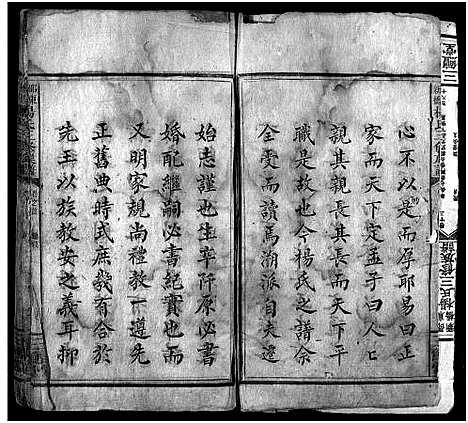 心不以是而厚耶易曰正
家而天下定孟子曰人人
親其親長其長而天下平
職是故也今楊氏之譜余
全受而讀焉溯派自夫遷
始志謹也生卒阡原必書
婚配繼嗣必書紀實也而
又明家規尚禮教一遵先
正舊典時式庶幾有合於
先王以族教安之義耳抑
三鱣堂
楊氏三修族譜